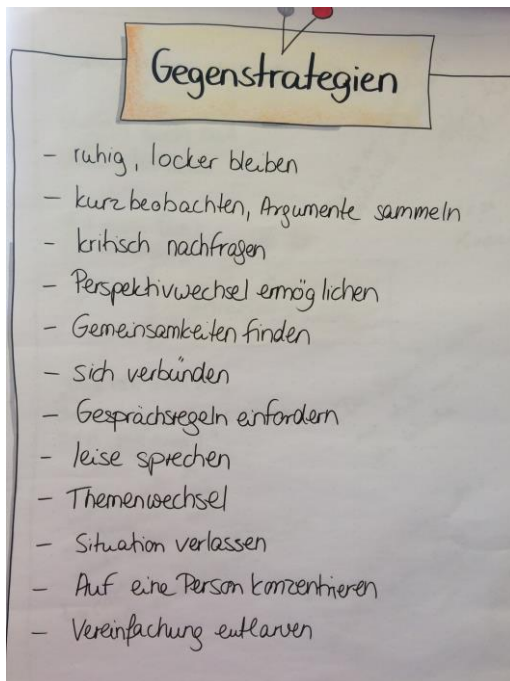 Gegenstrategien
- ruhig, locker bleiben
- kurz beobachten, Argumente sammeln
- kritisch nachfragen
- Perspektivwechsel ermöglichen
- Gemeinsamkeiten finden
- sich verbünden
- Gesprächsregeln einfordern
- leise sprechen
- Themenwechsel
- Situation verlassen
- Auf eine Person konzentrieren
- Vereinfachung entlarven